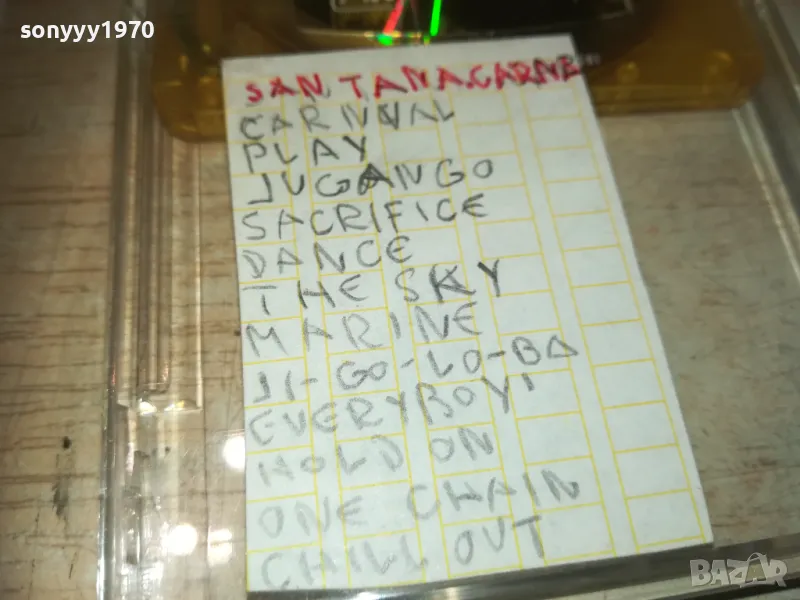 sonyyy1970
SAN.TANA.CARNE
CARNVAL
PLAY
JUGANGO
SACRIFICE
DANCE
THE SKY
MARINE
JI-GO-LO-BA
EVERYBOY'
HOLD ON
ONE CHAIN
CHILL OUT
BAZAR